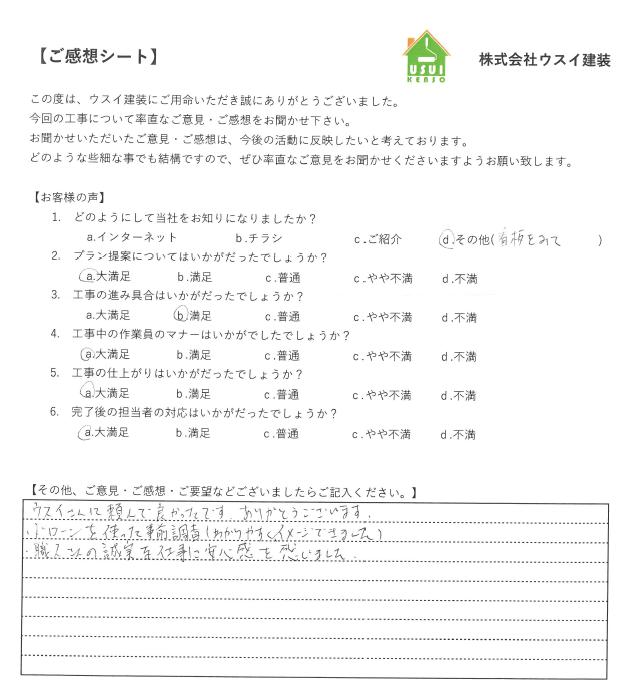 【ご感想シート】
USUI
KENSO
株式会社ウスイ建装
この度は、ウスイ建装にご用命いただき誠にありがとうございました。
今回の工事について率直なご意見・ご感想をお聞かせ下さい。
お聞かせいただいたご意見・ご感想は、今後の活動に反映したいと考えております。
どのような些細な事でも結構ですので、ぜひ率直なご意見をお聞かせくださいますようお願い致します。
【お客様の声】
1. どのようにして当社をお知りになりましたか？
a.インターネット b.チラシ c.ご紹介 d.その他(看板をみて )
2. プラン提案についてはいかがだったでしょうか？
a.大満足 b.満足 c.普通 c.やや不満 d.不満
3. 工事の進み具合はいかがだったでしょうか？
a.大満足 b.満足 c.普通 c.やや不満 d.不満
4. 工事中の作業員のマナーはいかがでしたでしょうか？
a.大満足 b.満足 c.普通 c.やや不満 d.不満
5. 工事の仕上がりはいかがだったでしょうか？
a.大満足 b.満足 c.普通 c.やや不満 d.不満
6. 完了後の担当者の対応はいかがだったでしょうか？
a.大満足 b.満足 c.普通 c.やや不満 d.不満
【その他、ご意見・ご感想・ご要望などございましたらご記入ください。】
ウスイさんに頼んで良かったです ありがとうございます.
・ドローンを使った事前調査(わかりやすくイメージできました)
・職人さんの誠実な仕事に安心感を感じました.